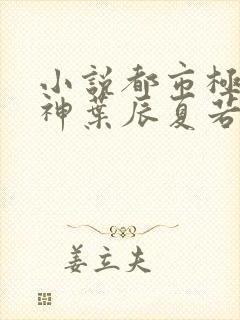 小説都市極
神葉辰夏若
姜立夫